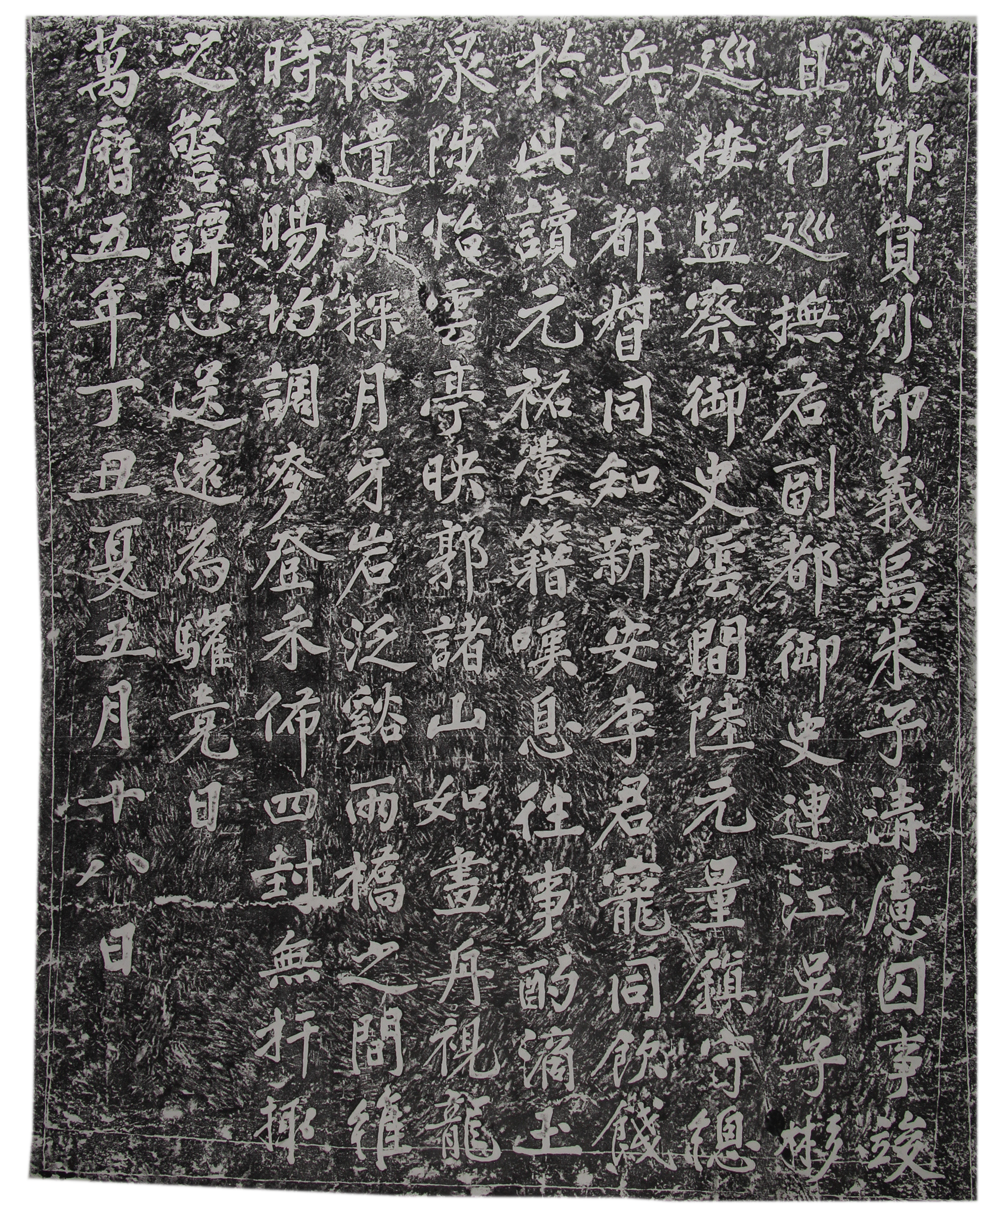 比部員外郎義烏朱子清慮囚事竣
且行巡撫右副都御史連江吳子彬
巡按監察御史雲間陸元量鎮守總
兵官都督同知新安李君寵同飲餞
於此讀元祐黨籍嘆息往事酌滴玉
泉陟怡雲亭映郭諸山如畫舟視龍
隱遺蹟探月牙岩泛谿雨橋之間維
時雨暘均調麥登禾佈四封無扞掫
之警譚心送遠為驩竟日
萬曆五年丁丑夏五月十八日